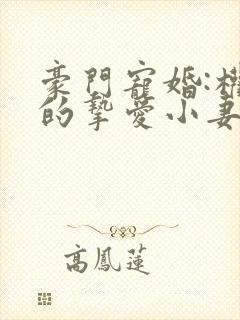 豪門寵婚:權
的摯愛小妻
高鳳蓮